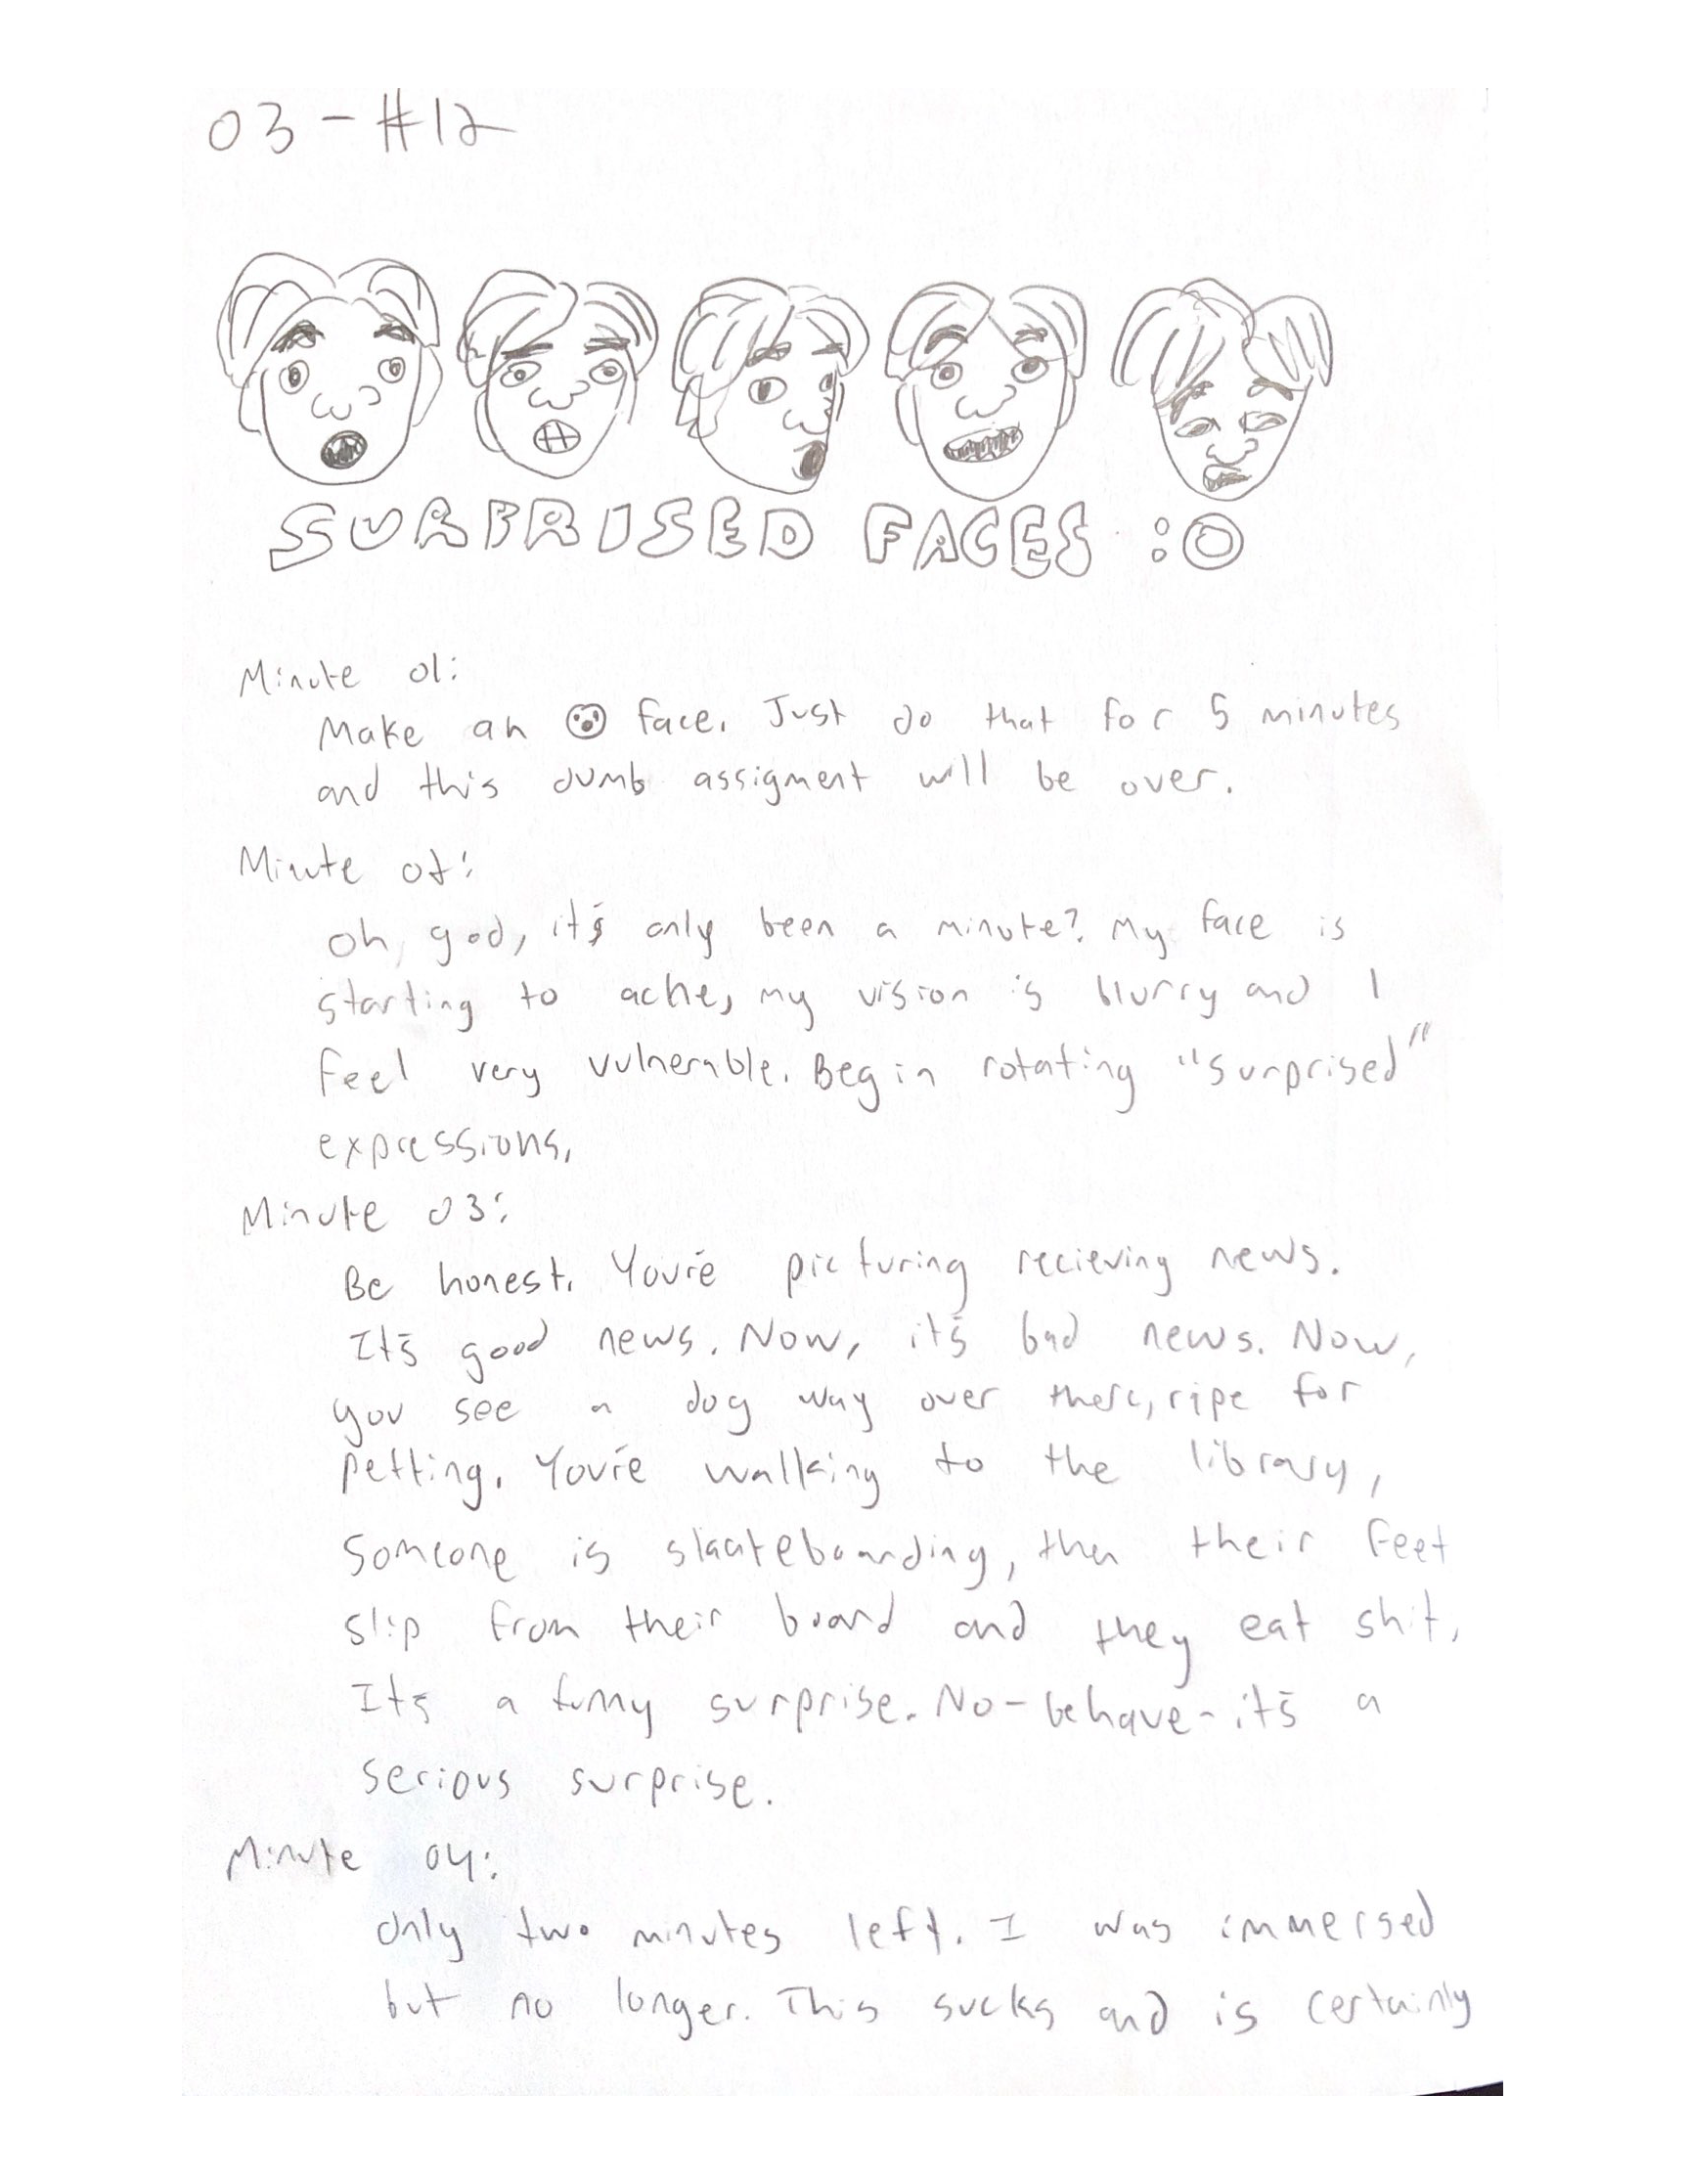 03 - #12
SURPRISED FACES :O
Minute 01:
Make an 😮 face. Just do that for 5 minutes
and this dumb assigment will be over.
Minute 02:
Oh god, it's only been a minute? My face is
starting to ache, my vision is blurry and I
feel very vulnerable. Begin rotating "surprised"
expressions.
Minute 03:
Be honest. You're picturing recieving news.
It's good news. Now, it's bad news. Now,
you see a dog way over there, ripe for
petting. You're walking to the library,
someone is skateboarding, then their feet
slip from their board and they eat shit.
It's a funny surprise. No-behave-it's a
serious surprise.
Minute 04:
Only two minutes left. I was immersed
but no longer. This sucks and is certainly